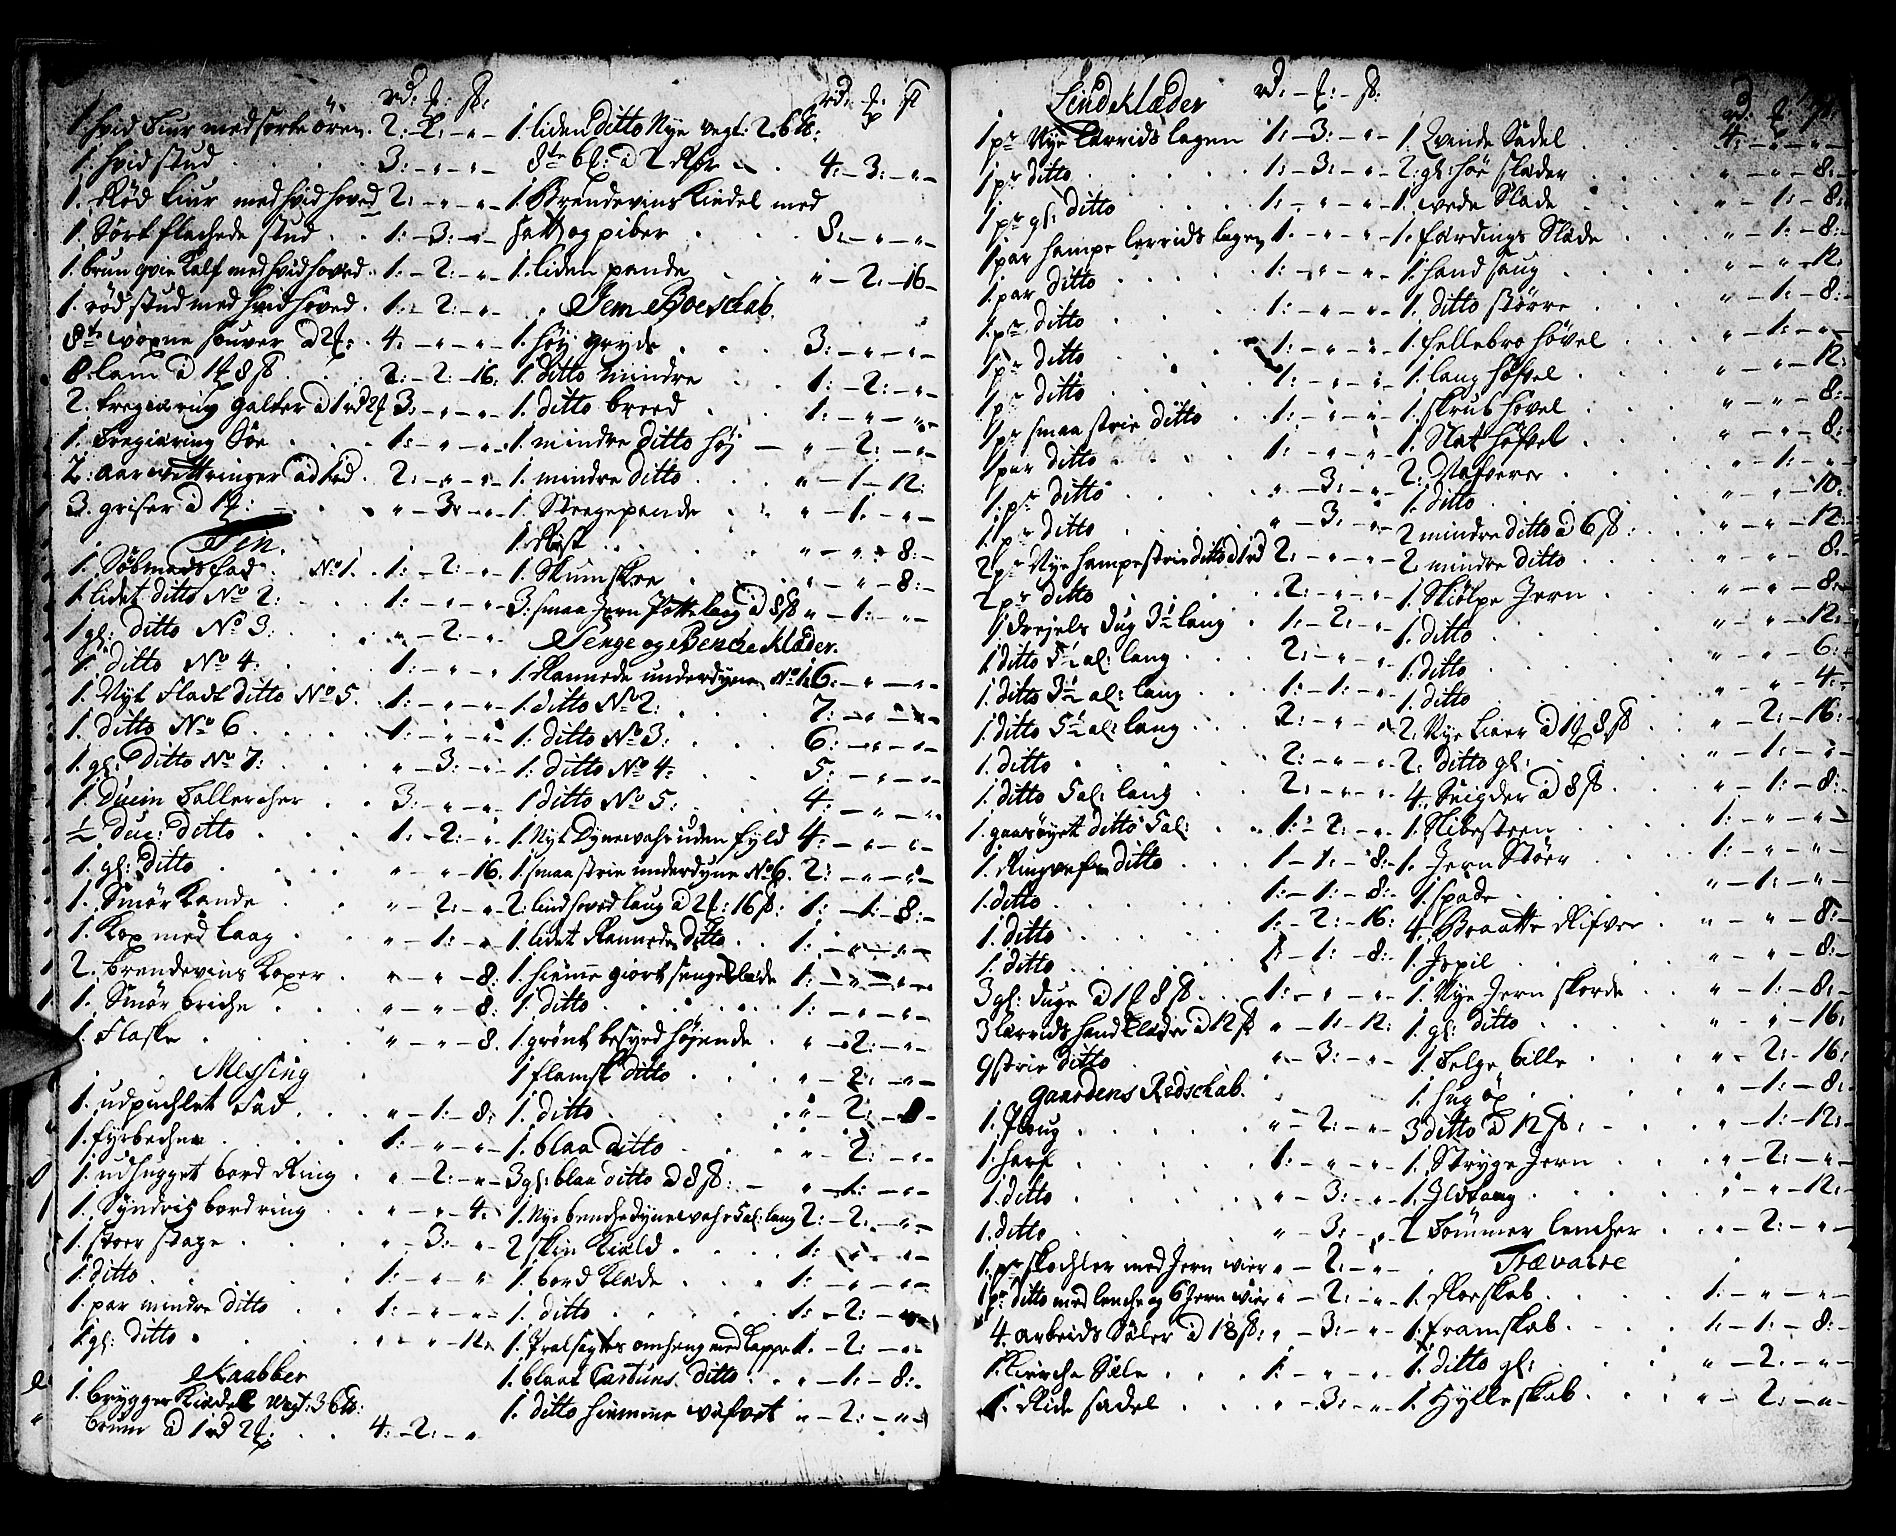 rd: ƒ: ß:
1. hvid kiur med sorte ören. 2: - 2: - " -
1. hvid stud . . . 3: - " - " -
1. Röd kiur med hvid hoved 2: - " - " -
1. Sort flachede stud . . 1: - 3: - " -
1. brun qvie Kalf med hvid hoved . 1: - 2: - " -
1. röd stud med hvid hoved . 1: - 2: - " -
8te woxne souver a 2ƒ: . 4: - " - " -
8. lam a 1ƒ 8ß . . 2: - 2: - 16:
2. tregiæring galter a 1rd 2ƒ 3: - " - " -
1. tregiæring Söe . . . 1: - " - " -
2: aar wettringer a 1rd . 2: - " - " -
3. griser a 1ƒ: . . " - 3: - " -
Tin.
1. Söbmads fad . No 1. . 1: - 2: - " -
1 lidet ditto No 2: . . . 1: - " - " -
1 gl: ditto No 3: . . . " - 2: - " -
1. ditto No 4: . . . 1: - " - " -
1. Nyt Fladt ditto No 5. 1: - " - " -
1. ditto No 6 . . . 1: - " - " -
1. gl: ditto No 7: . . " - 3: - " -
1. Ducin Tallercher . . 3: - " - " -
½ Duc: ditto . . . 1: - 2: - " -
1. gl: ditto . . . " - " - 16.
1. Smör Kande . . " - 2: - " -
1. Kop med laag . . " - 1: - " -
2. brendevins Koper . " - " - 8:
1. Smör briche . . . " - " - 8:
1. Flaske . . . " - " - 8.
Messing
1. udpuchlet Fad . . " - 1: - 8:
1. fyrbechen . . . 1: - " - " -
1. udhugget bord Ring . " - 2: - " -
1. Syndrig bord ring . . " - " - 4.
1. stoer stage . . . " - 3: - " -
1. ditto . . . 1: - " - "
1. par mindre ditto . . 1: - " - " -
1. gl: ditto . . . " - " - 12.
Kaabber
1. brygger Kiedel vegt: 36 ℔:
brum a 1rd 2ƒ: . . 4: - 2: - "
rd: ƒ: ß
1. liden ditto Nye vegt: 26 ℔:
8te bl: a 2 Rpr . . 4: - 3: - " -
1. Brendevins Kiedel med
hatt og piber . . . 8: - " - " -
1. liden pande . . " - 2: - 16 -
Jern Boeskab.
1. höy gryde . . . 3: - " - " -
1. ditto mindre . . 1: - 2: - " -
1. ditto breed . . 1: - " - " -
1. mindre ditto höy - " - 2: - " -
1. mindre ditto . . " - 1 - 12:
1. Stegepande . . " - 1: - " -
1. Rist . . . " - " - 8: -
1. Skumskee . . . " - " - 8: -
3: smaa Jern Potte laag a 8ß " - 1: - " -
Senge og Benche Klæder.
1. Rannede underdyne No 1. 6: - " - " -
1. ditto No 2: . . . 7: - " - " -
1: ditto No 3: . . . 6: - " - " -
1: ditto No 4: . . 5: - " - " -
1 ditto No 5: . . . 4: - " - " -
1. Nyt Dynewahr uden fyld 4: - " - " -
1. smaa strie underdyne No 6. 2: - " - " -
2: lind hoved laug a 2ƒ: 16ß: 1: - 1: - 8: -
1. lidet Rannede ditto . . 1: - " - " -
1. hieme giort sengeklæde 1: - " - " -
1. ditto . . . 1: - " - " -
1. grönt besyed höyende . " - 2: - " -
1 flamsk ditto . . . " - 2: - " -
1. ditto . . . " - 2: - " -
1. blaa ditto . . . " - 2: - " -
3 gl: blaa ditto a 8ß: - " - 1: - " -
1. Nye benchedynewahr 5 al: lang 2: - 2: - " -
2 skin Kield . . . 1: - " - " -
1. bord Klæde . . . 1: - " - " -
1. ditto . . . 1: - 2: - " -
1. omheng med kappe 1. - 2: - " -
1. blaae Cartuns ditto . . " - 1: - 8: -
1. ditto hiemme wæfvet " - 2: - " -
Lindeklæder
rd: - ƒ: - ß:
1 pr Nye lærrids lagen 1: - 3: - " -
1 pr ditto . . . 1: - 3: - " -
1 pr gl: ditto . . 1: - " - " -
1 par hampe lerrids lagen 1: - " - " -
1 par ditto . . . 1: - " - " -
1. pr ditto . . . 1: - " - " -
1 pr ditto . . . 1: - " - " -
1 pr ditto . . . 1: - " - " -
1 pr smaa strie ditto . . 1: - " - " -
1 par ditto . . . 1: - " - " -
1. pr ditto . . . " - 3: - " -
1 pr ditto . . . " - 3: - " -
2 pr Nye hampestrie ditto a 1rd 2: - " - " -
2 pr ditto . . . 2: - " - " -
1 drejels dug 3½ lang . 1: - 2: - " -
1 ditto 5½ al: lang . . 2: - " - " -
1. ditto 3½ al: lang . . 1: - 1: - " -
1 ditto 5½ al: lang . . 2: - " - " -
1. ditto . . . 2: - " - " -
1. ditto 5 al: lang . . 2: - " - " -
1. gaasöyet ditto 5 al: . . 1: - 2: - " -
1. ditto . . . 1 - 1: - 8: -
1. ditto . . . 1: - 1: - 8: -
1. ditto . . . 1: - 2: - 16:
1. ditto . . . 1 - 1: - 8: -
3 gl: duge a 1ƒ 8ß . . 1: - " - " -
3 lærrids handklæder a 12ß " - 1: - 12:
9 strie ditto . . . " - 3: - " -
Gaardens Redschab.
1. Ploug . . . " - 2: - " -
1. harf . . . 1: - " - " -
1. ditto . . . " - 3: - " -
1. ditto . . . " - 3: - " -
1. pr skochler med Jern vier " - 2: - " -
1 pr ditto med lenche og 6 Jern vier " - 2: - " -
4. arbeids Seler a 18ß: " - 3: - " -
1. Kierche Sæle . . . 1: - " - " -
1. Ride sadel . . . " - 3: - " -
rd: ƒ: ß
1. Qvinde Sadel . . . 4: - " - " -
2: gl: höe slæder . . " - " - 8: -
1. wede Slæde . . . " - 1: - 8:
1. færdings Slæde . . " - 1: - 8: -
1. hand saug . . . " - " - 12:
1. ditto större . . . " - 1: - 8: -
1. hellebro hövel . . . " - 1: - " -
1. lang höfvel . . . " - " - 12:
1. skrub hovel . . . " - " - 8: -
1. Slat höfvel . . . " - " - 8: -
2. Nafverer . . . " - 1: - " -
1. ditto . . . " - " - 10:
2 mindre ditto a 6ß: . . " - " - 12:
2 mindre ditto . . . " - " - 8:
1. Skiölpe Jern . . . " - " - 8: -
1. ditto . . . " - " - 12:
1. ditto . . . " - " - 6: -
1. ditto . . . " - " - 4: -
2. Nye liaer a 1ƒ 8ß . . " - 2: - 16:
2: ditto gl: . . . " - 1: - " -
4. Seigder a 8ß . . . " - 1: - 8: -
1. Slibesteen . . . 1: - " - " -
1. Jern Stöer . . . 1: - " - " -
1. spade . . . " - 1: - " -
4. Braatte Rifver . " - " - 8: -
1. Jspil . . . " - " - 8: -
1. Nye Jern skorde . . " - 1: - 8: -
1. gl: ditto . . . " - " - 16:
1. Telge bille . . . " - 2: - 16:
1. hug öx . . . " - 1: - 8: -
3 ditto a 12ß: . . . " - 1: - 12:
1. Stryge Jern . . . " - 2: - " -
1. Jldtang . . . " - " - 12: -
2 Tömmer lencher . . " - 2: - " -
Trævahre
1. Roeskab . . . 1: - " - " -
1. framskab . . . 1: - 1: - 8: -
1. ditto gl: . . . " - 2. - " -
1. Hylleskab . . . " - 2: - " -